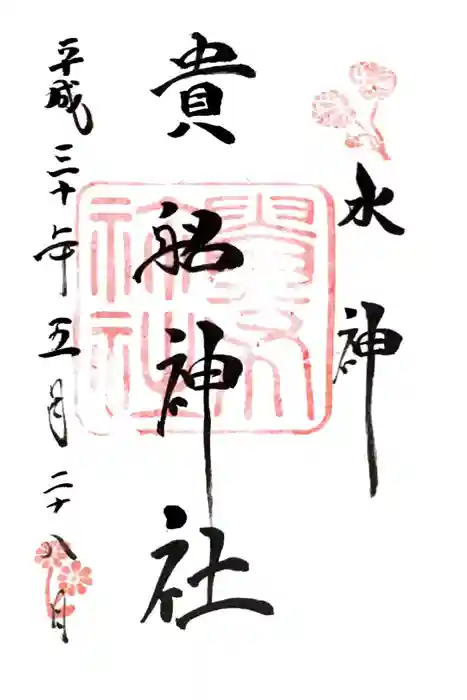 水神
貴船神社
平成三十年五月二十八日